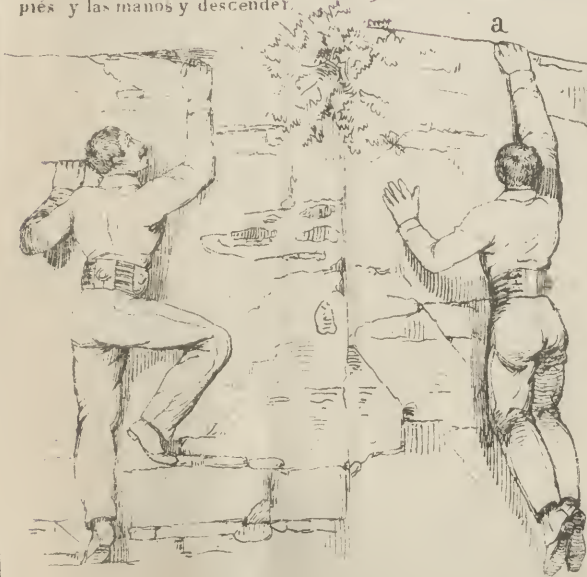 piés y las manos y descender.
a